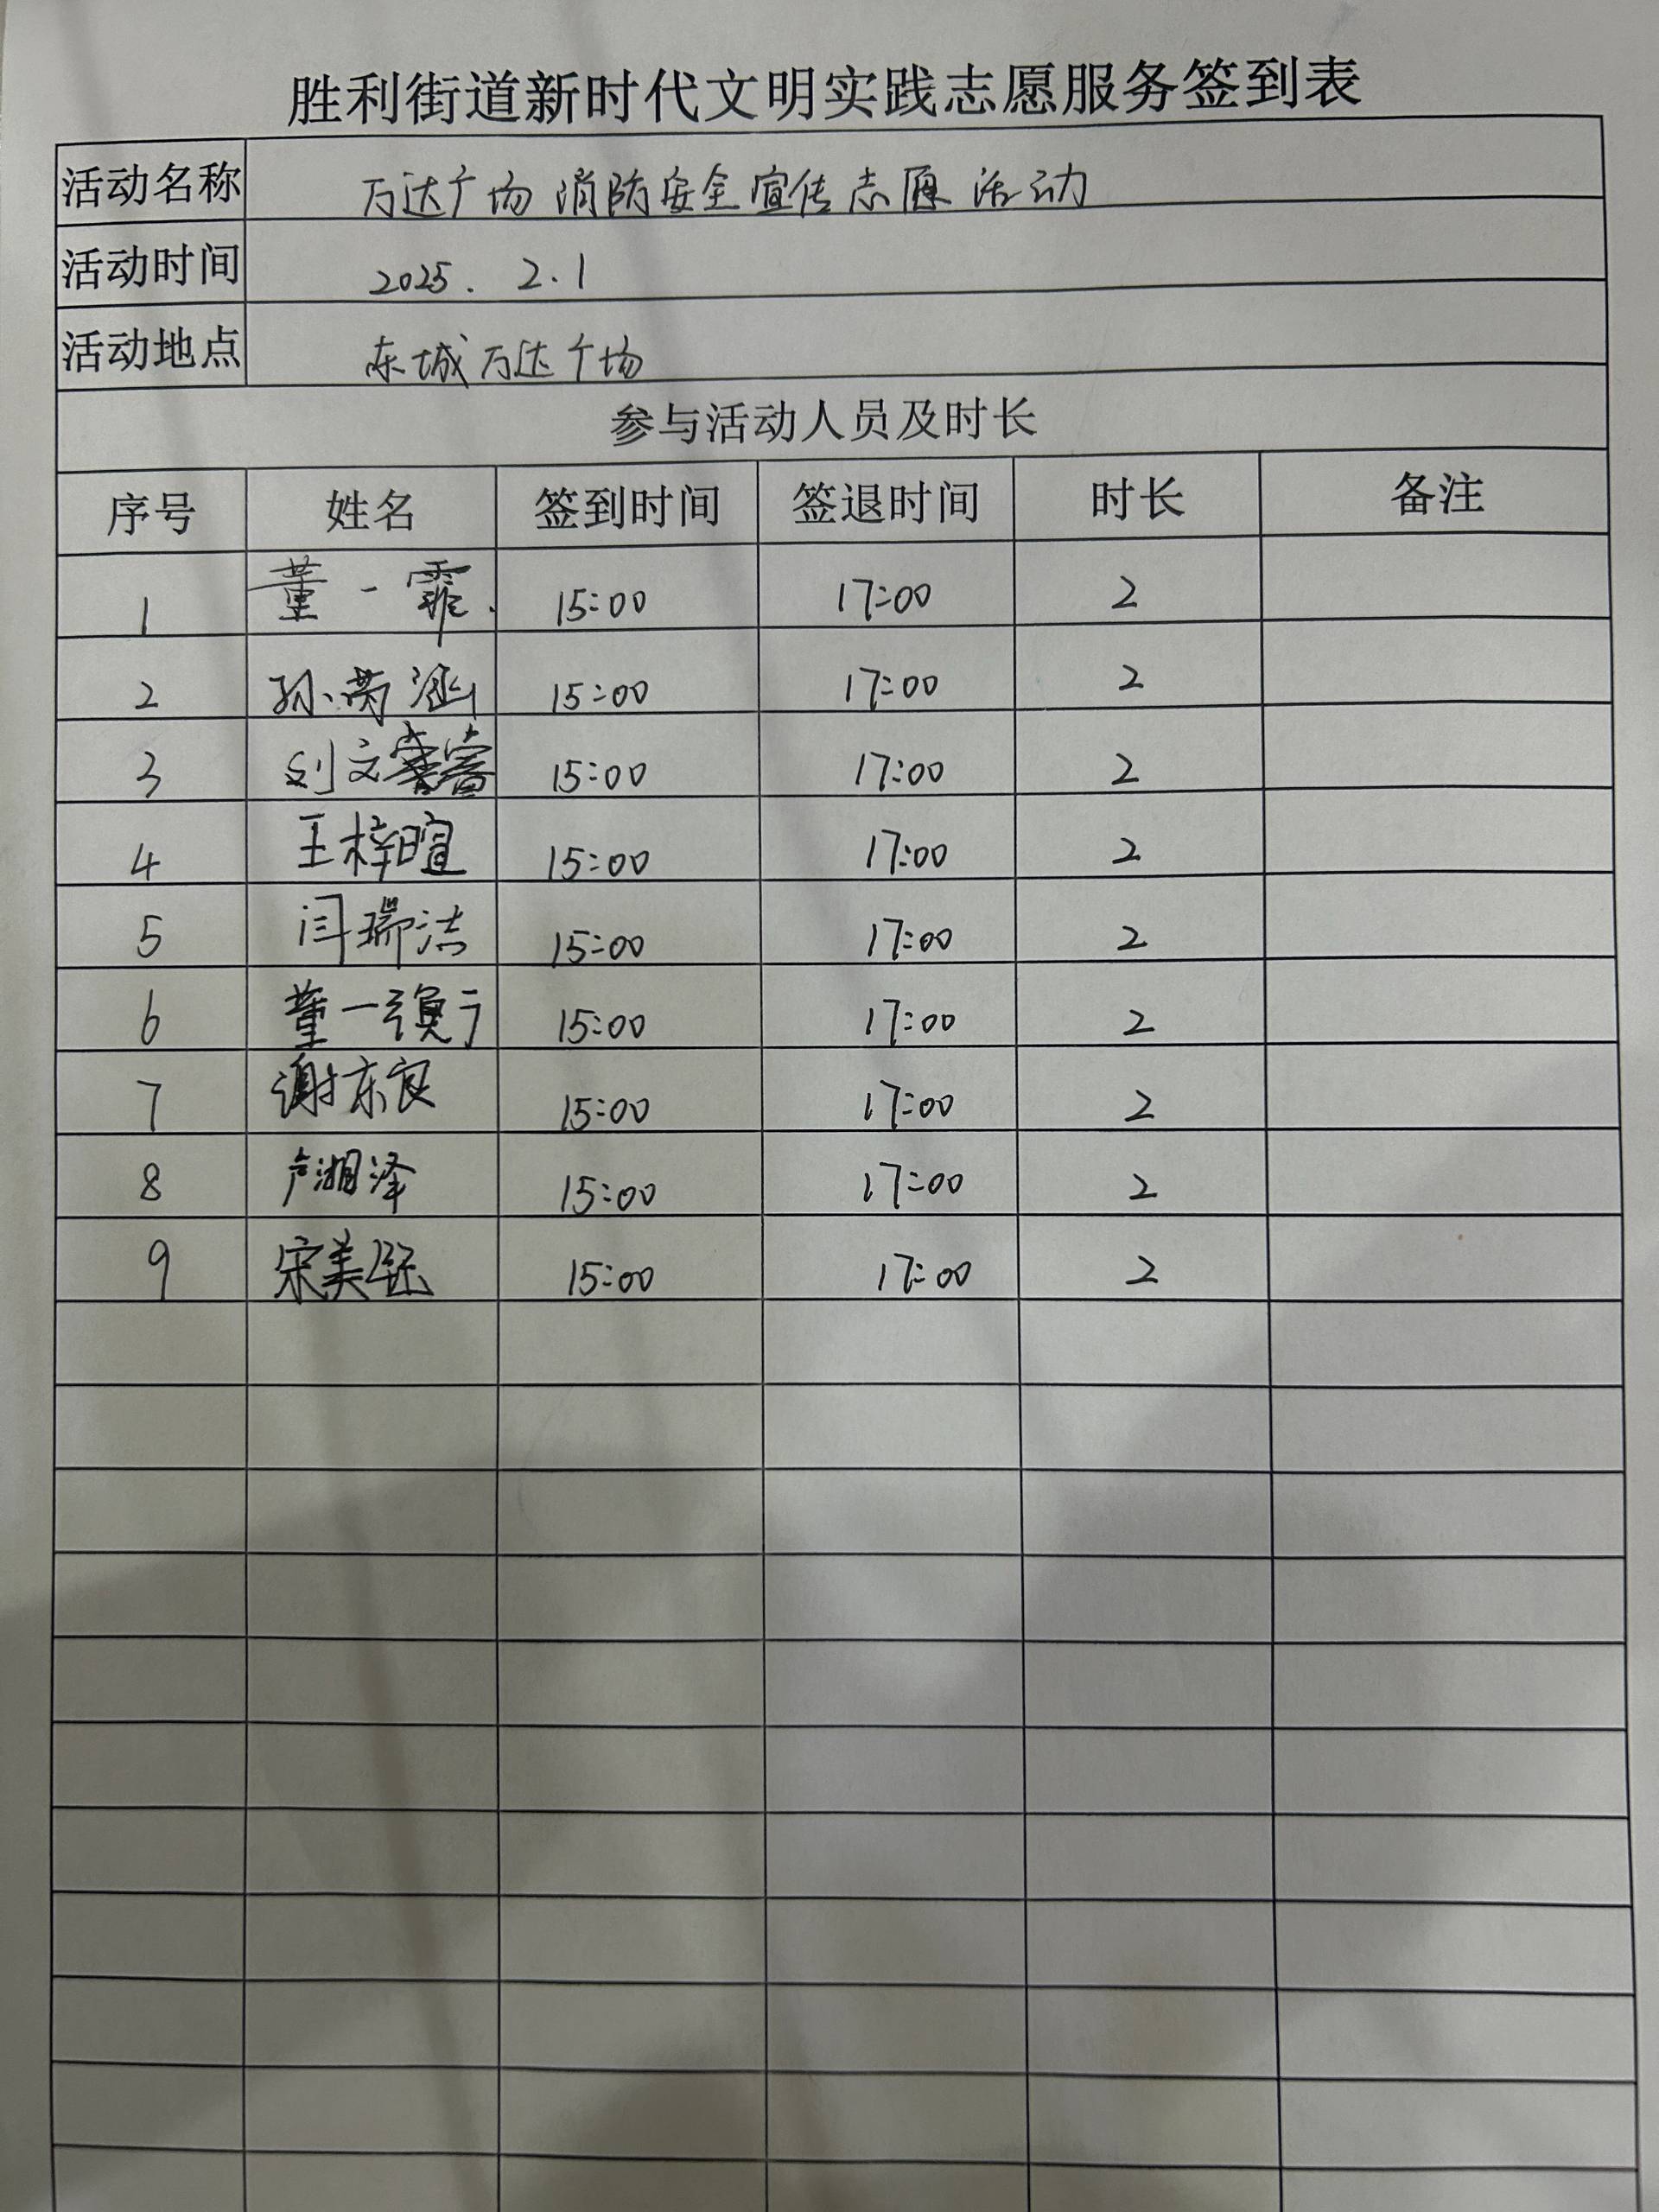 胜利街道新时代文明实践志愿服务签到表
活动名称 万达广场消防安全宣传志愿活动
活动时间 2025. 2.1
活动地点 东城万达广场
参与活动人员及时长
序号 姓名 签到时间 签退时间 时长 备注
1 董一霏 15:00 17:00 2
2 孙 涵 15:00 17:00 2
3 刘文 15:00 17:00 2
4 王梓暄 15:00 17:00 2
5 闫瑞洁 15:00 17:00 2
6 董一 15:00 17:00 2
7 谢东良 15:00 17:00 2
8 卢湘泽 15:00 17:00 2
9 宋美钰 15:00 17:00 2